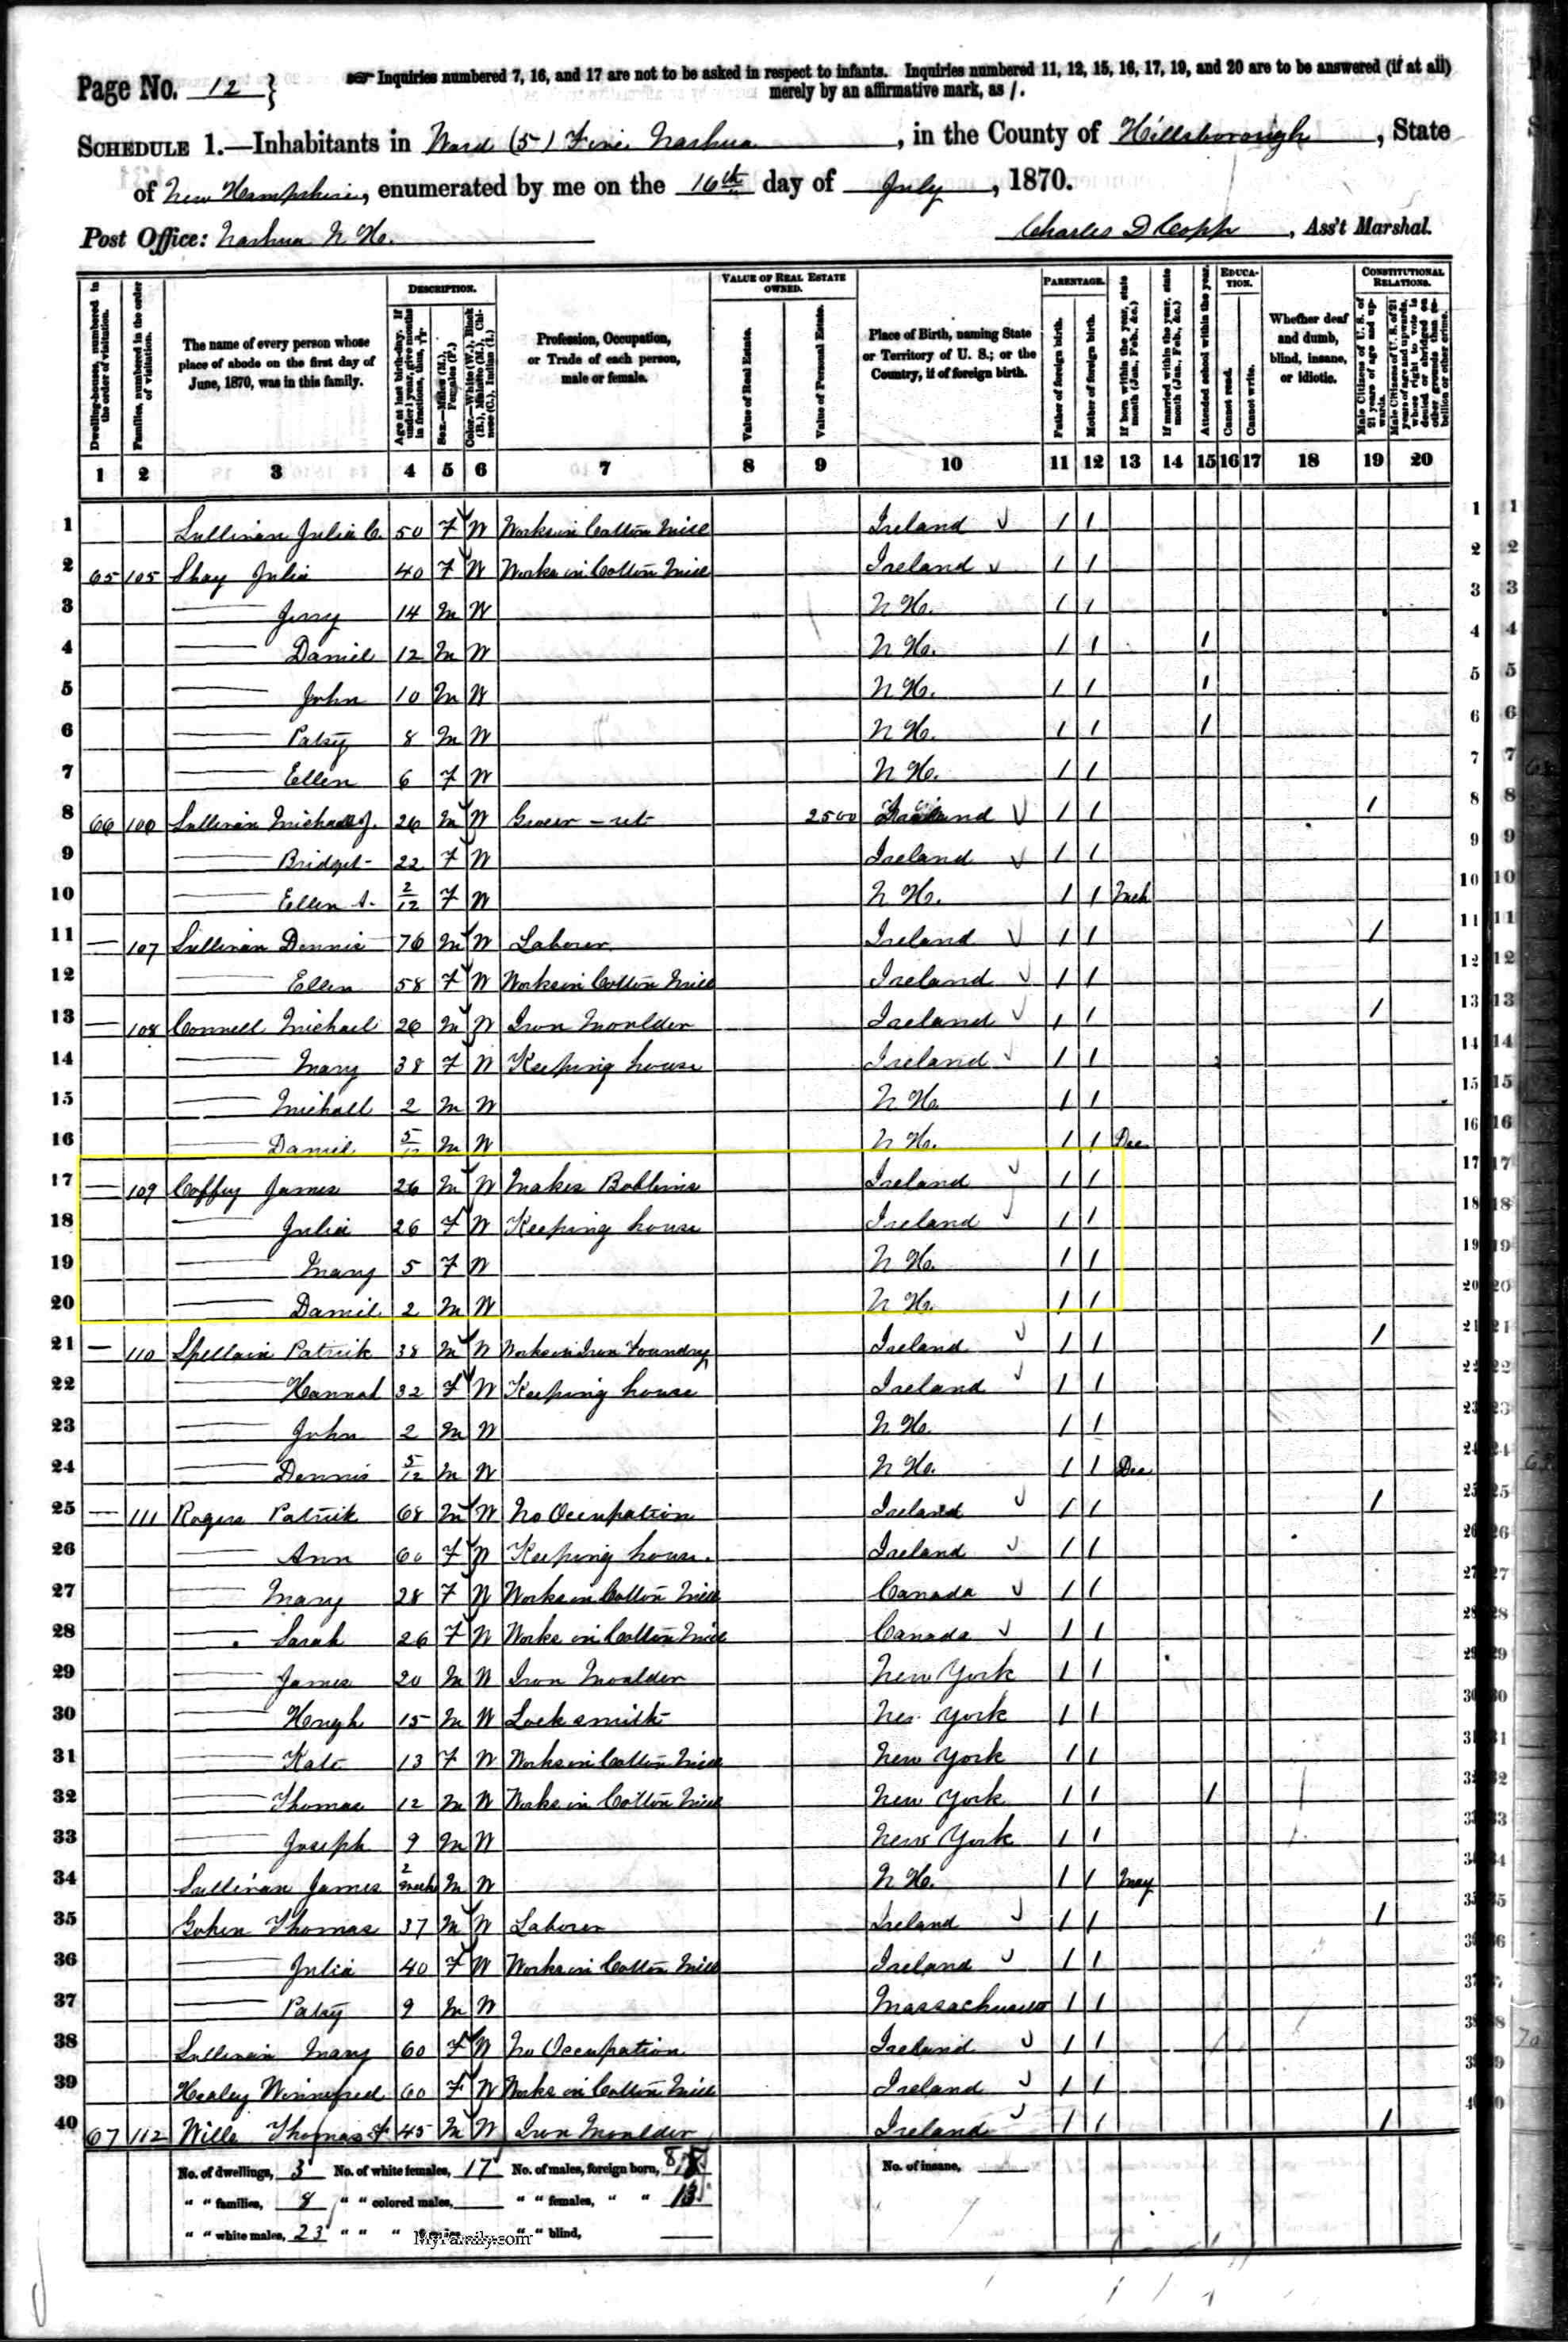 Page No. 12 } Inquiries numbered 7, 16, and 17 are not to be asked in respect to infants. Inquiries numbered 11, 12, 15, 16, 17, 19, and 20 are to be answered (if at all)
merely by an affirmative mark, as /.
SCHEDULE 1.—Inhabitants in Ward (5) Five Nashua, in the County of Hillsborough, State
of New Hampshire, enumerated by me on the 16th day of July, 1870.
Post Office: Nashua N H. Charles D Copp, Ass't Marshal.
Dwelling-houses, numbered in the order of visitation.
Families, numbered in the order of visitation.
The name of every person whose place of abode on the first day of June, 1870, was in this family.
DESCRIPTION.
Age at last birth-day. If under 1 year, give months in fractions, thus, 3/12.
Sex.—Males (M.), Females (F.)
Color.—White (W.), Black (B.), Mulatto (M.), Chinese (C.), Indian (I.)
Profession, Occupation, or Trade of each person, male or female.
VALUE OF REAL ESTATE OWNED.
Value of Real Estate.
Value of Personal Estate.
Place of Birth, naming State or Territory of U. S.; or the Country, if of foreign birth.
PARENTAGE.
Father of foreign birth.
Mother of foreign birth.
If born within the year, state month (Jan. Feb., &c.)
If married within the year, state month (Jan. Feb., &c.)
Attended school within the year.
EDUCATION.
Cannot read.
Cannot write.
Whether deaf and dumb, blind, insane, or idiotic.
CONSTITUTIONAL RELATIONS.
Male Citizens of U. S. of 21 years of age and upwards.
Male Citizens of U. S. of 21 years of age and upwards, whose right to vote is denied or abridged on other grounds than rebellion or other crime.
1 2 3 4 5 6 7 8 9 10 11 12 13 14 15 16 17 18 19 20
1 Sullivan Julia C. 50 F W Works in Cotton Mill Ireland / / 1
2 65 105 Shay Julia 40 F W Works in Cotton Mill Ireland / / 2
3 — Jerry 14 M W N H. / / 3
4 — Daniel 12 M W N H. / / / 4
5 — John 10 M W N H. / / / 5
6 — Patsy 8 M W N H. / / / 6
7 — Ellen 6 F W N H. / / 7
8 66 106 Sullivan Michael J. 26 M W Grocer - ret 2500 Ireland / / / 8
9 — Bridget 22 F W Ireland / / 9
10 — Ellen A. 2/12 F W N H. / / Mch 10
11 — 107 Sullivan Dennis 76 M W Laborer Ireland / / / 11
12 — Ellen 58 F W Works in Cotton Mill Ireland / / 12
13 — 108 Connell Michael 26 M W Iron Moulder Ireland / / / 13
14 — Mary 38 F W Keeping house Ireland / / 14
15 — Michall 2 M W N H. / / 15
16 — Daniel 5/12 M W N H. / / Dec 16
17 — 109 Coffey James 26 M W Makes Bobbins Ireland / / 17
18 — Julia 26 F W Keeping house Ireland / / 18
19 — Mary 5 F W N H. / / 19
20 — Daniel 2 M W N H. / / 20
21 — 110 Spellain Patrick 38 M W Works in Iron Foundry Ireland / / / 21
22 — Hannah 32 F W Keeping house Ireland / / 22
23 — John 2 M W N H. / / 23
24 — Dennis 5/12 M W N H. / / Dec 24
25 — 111 Rogers Patrick 68 M W No Occupation Ireland / / / 25
26 — Ann 60 F W Keeping house. Ireland / / 26
27 — Mary 28 F W Works in Cotton Mill Canada / / 27
28 — Sarah 26 F W Works in Cotton Mill Canada / / 28
29 — James 20 M W Iron Moulder New York / / 29
30 — Hough 15 M W Locksmith New York / / 30
31 — Kate 13 F W Works in Cotton Mill New York / / 31
32 — Thomas 12 M W Works in Cotton Mill New York / / / 32
33 — Joseph 9 M W New York / / 33
34 Sullivan James 2 M W N H. / / May 34
35 Gohen Thomas 37 M W Laborer Ireland / / / 35
36 — Julia 40 F W Works in Cotton Mill Ireland / / 36
37 — Patsy 9 M W Massachusetts / / 37
38 Sullivan Mary 60 F W No Occupation Ireland / / 38
39 Healey Winnefred 60 F W Works in Cotton Mill Ireland / / 39
40 67 112 Wills Thomas F 45 M W Iron Moulder Ireland / / / 40
No. of dwellings, 3 No. of white females, 17 No. of males, foreign born, 8 No. of insane,
" " families, 8 " " colored males, " " females, " " 13
" " white males, 23 " " " " " blind,
MyFamily.com